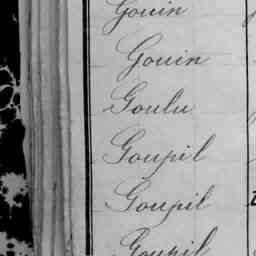 Gouin
Gouin
Goulu
Goupil
Goupil
Goupil